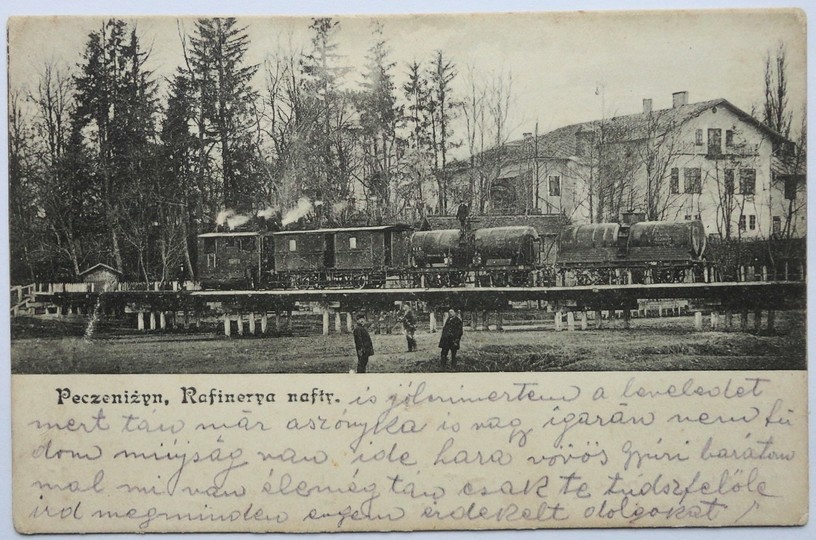 Peczeniżyn, Rafinerya nafty. is jól ismertem a leveledet
mert tan már aszónyka is vagy igarán nem tu
dom miújság van ide hara vörös Gyuri barátom
mal mi van élemég tan csak te tudsz felöle
ird meg minden engem érdekelt dolgokat